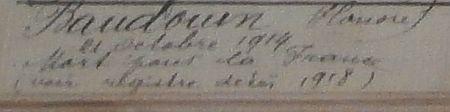 Baudouin Honoré
21 octobre 1914
Mort pour la France
(voir registre décès 1918)